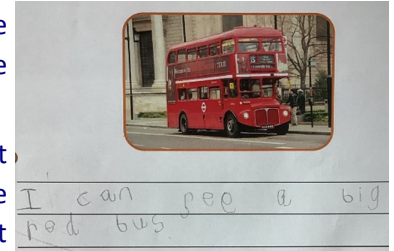 e
e
t
e
t
I can see a big
red bus.